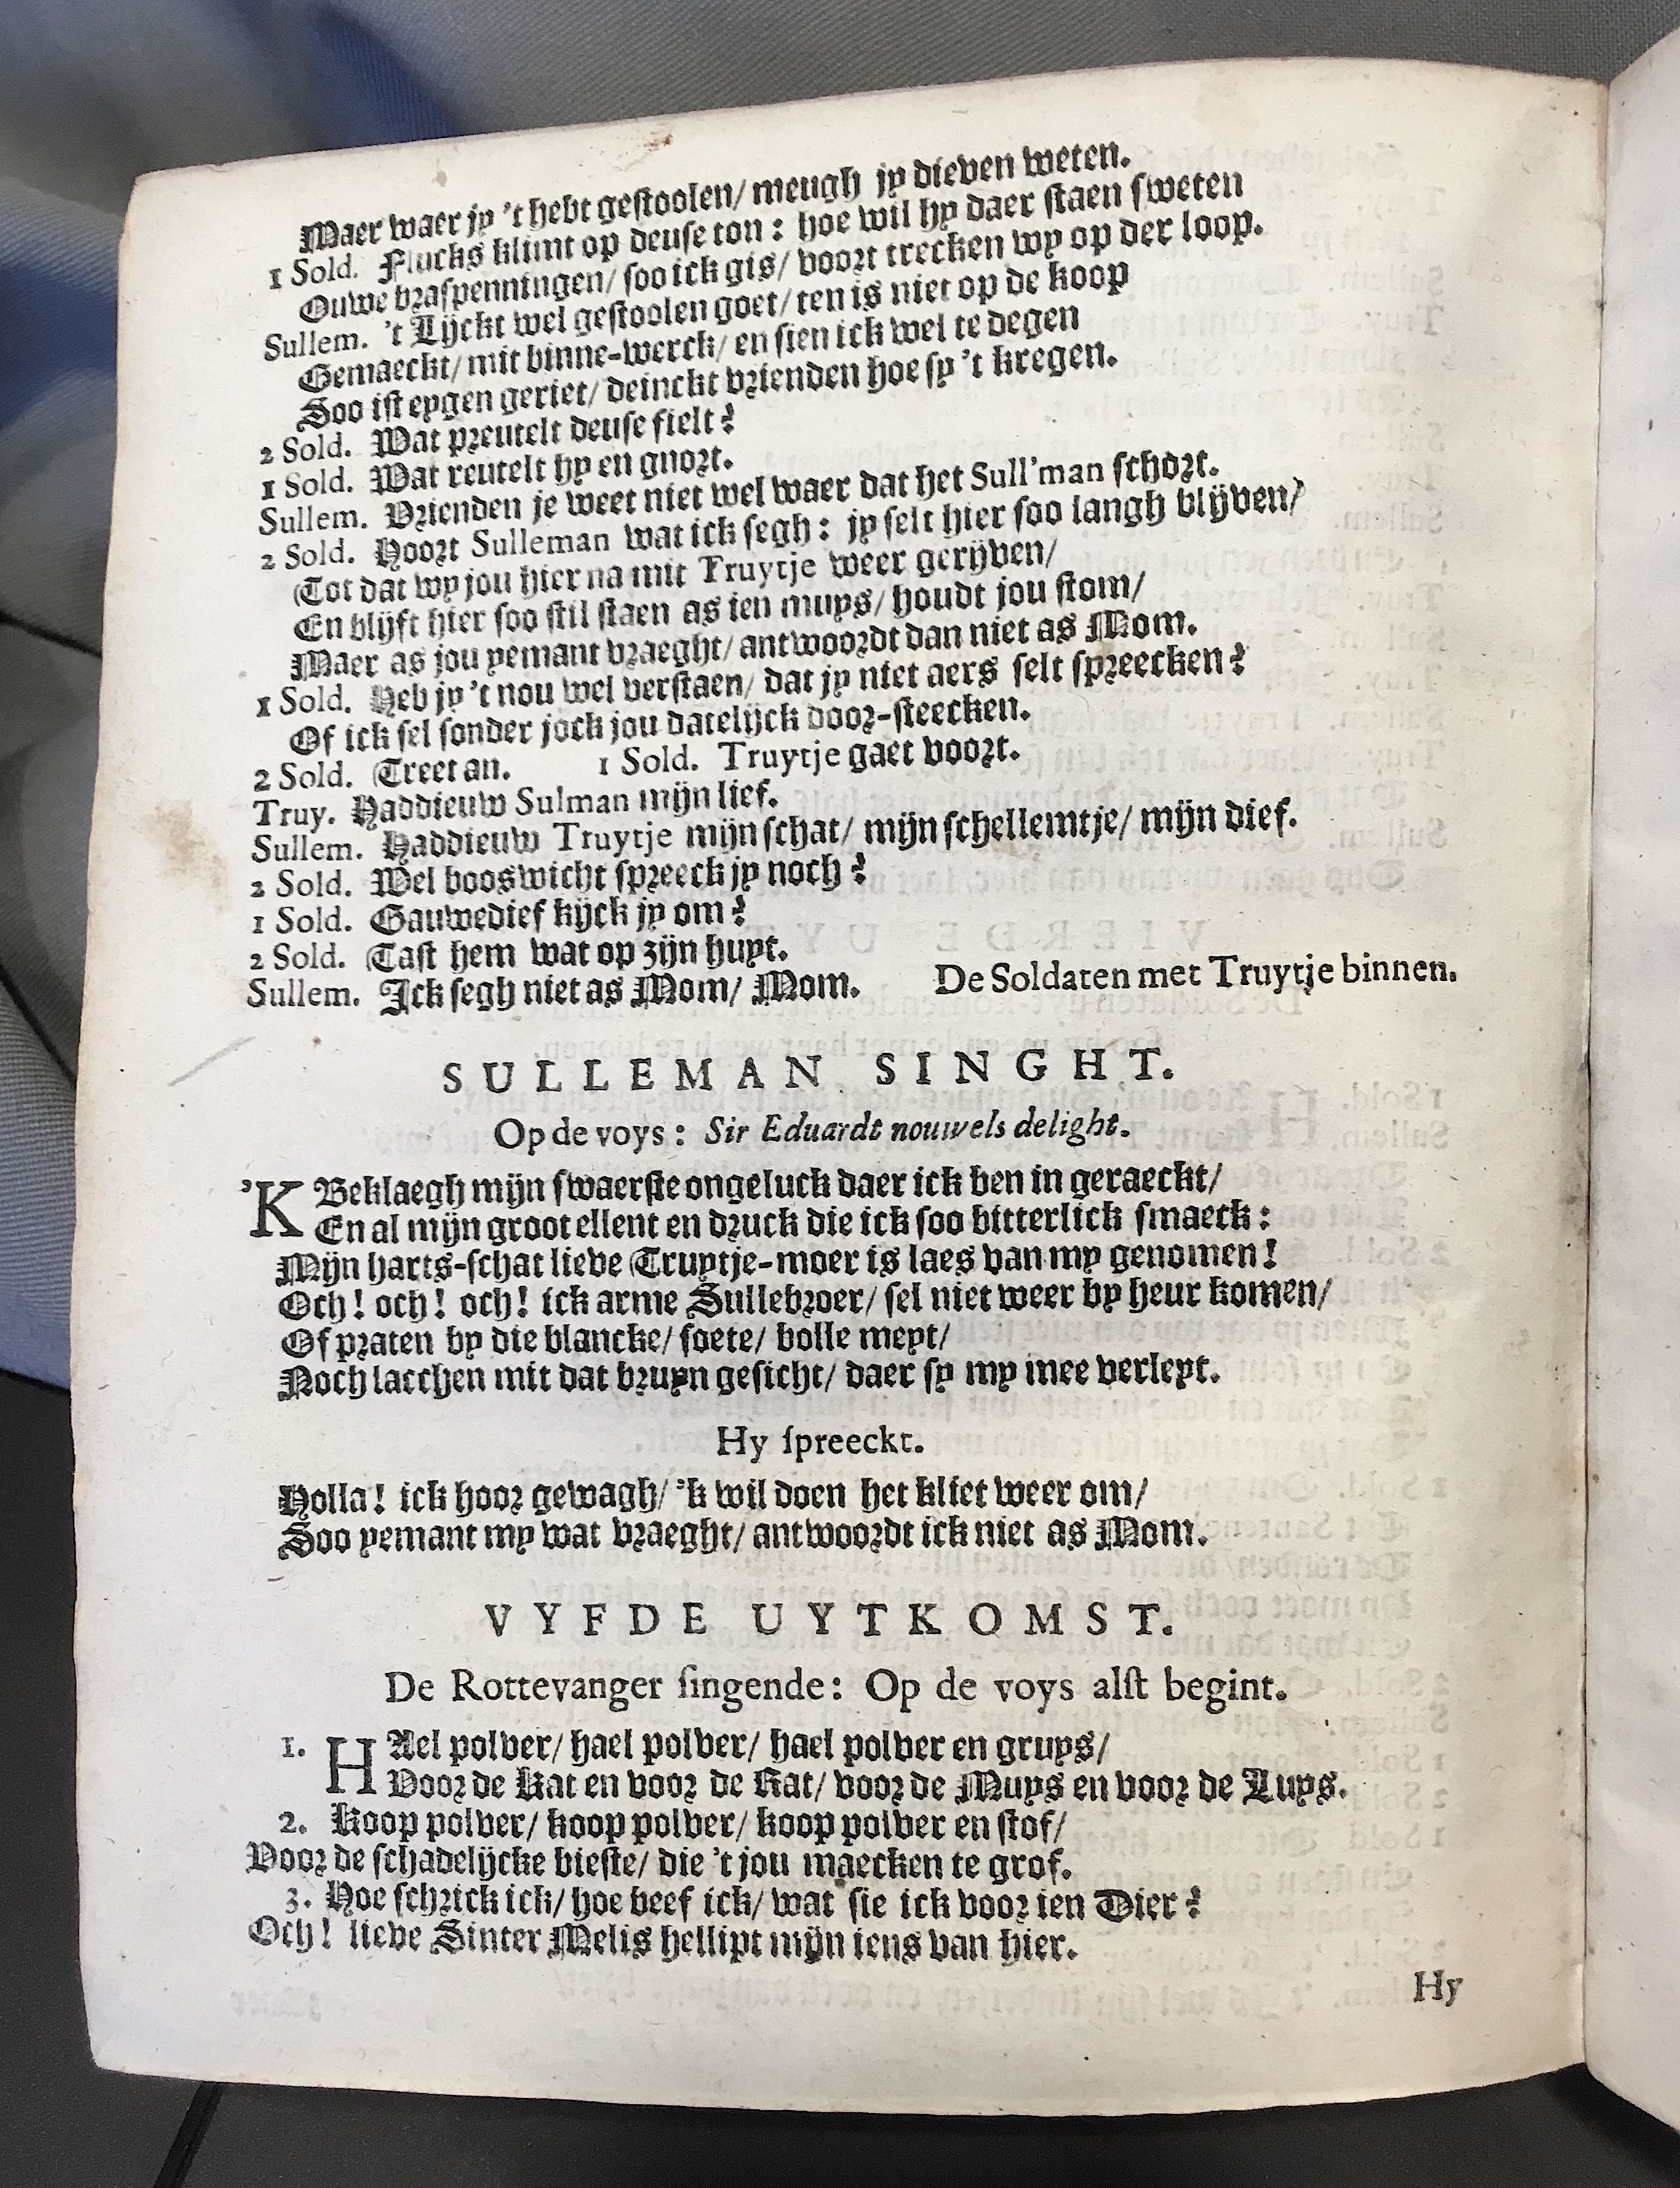 Maer waer jy 't hebt gestoolen/ meugh jy dieven weten.
1 Sold. Flucks klimt op deuse ton: hoe wil hy daer staen sweten
Ouwe braspenningen/ soo ick gis/ voort trecken wy op der loop.
Sullem. 't Lijckt wel gestoolen goet/ ten is niet op de koop
Gemaeckt/ mit binne-werck/ en sien ick wel te degen
Soo ist eygen geriet/ deinckt vrienden hoe sy 't kregen.
2 Sold. Wat preutelt deuse fielt?
1 Sold. Wat reutelt hy en gnort.
Sullem. Vrienden je weet niet wel waer dat het Sull'man schort.
2 Sold. Hoort Sulleman wat ick segh: jy selt hier soo langh blijven/
Tot dat wy jou hier na mit Truytje weer gerijven/
En blijft hier soo stil staen as ien muys/ houdt jou stom/
Maer as jou yemant vraeght/ antwoordt dan niet as Mom.
1 Sold. Heb jy 't nou wel verstaen/ dat jy niet aers selt spreecken?
Of ick sel sonder jock jou datelijck door-steecken.
2 Sold. Treet an. 1 Sold. Truytje gaet voort.
Truy. Haddieuw Sulman mijn lief.
Sullem. Haddieuw Truytje mijn schat/ mijn schellemtje/ mijn dief.
2 Sold. Wel booswicht spreeck jy noch?
1 Sold. Gauwedief kijck jy om?
2 Sold. Tast hem wat op zijn huyt.
Sullem. Ick segh niet as Mom/ Mom. De Soldaten met Truytje binnen.
SULLEMAN SINGHT.
Op de voys: Sir Eduardt nouwels delight.
'K Beklaegh mijn swaerste ongeluck daer ick ben in geraeckt/
En al mijn groot ellent en druck die ick soo bitterlick smaeck:
Mijn harts-schat lieve Truytje-moer is laes van my genomen!
Och! och! och! ick arme Sullebroer/ sel niet weer by heur komen/
Of praten by die blancke/ soete/ bolle meyt/
Noch lacchen mit dat bruyn gesicht/ daer sy my mee verleyt.
Hy spreeckt.
Holla! ick hoor gewagh/ 'k wil doen het kliet weer om/
Soo yemant my wat vraeght/ antwoordt ick niet as Mom.
VYFDE UYTKOMST.
De Rottevanger singende: Op de voys alst begint.
1. HAel polver/ hael polver/ hael polver en gruys/
Voor de Kat en voor de Rat/ voor de Muys en voor de Luys.
2. Koop polver/ koop polver/ koop polver en stof/
Voor de schadelijcke bieste/ die 't jou maecken te grof.
3. Hoe schrick ick/ hoe beef ick/ wat sie ick voor ien Dier?
Och! lieve Sinter Melis hellipt mijn iens van hier.
Hy